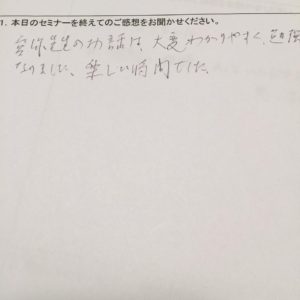 1. 本日のセミナーを終えてのご感想をお聞かせください。
先生のお話は、大変わかりやすく、勉強
なりました。楽しい時間でした。